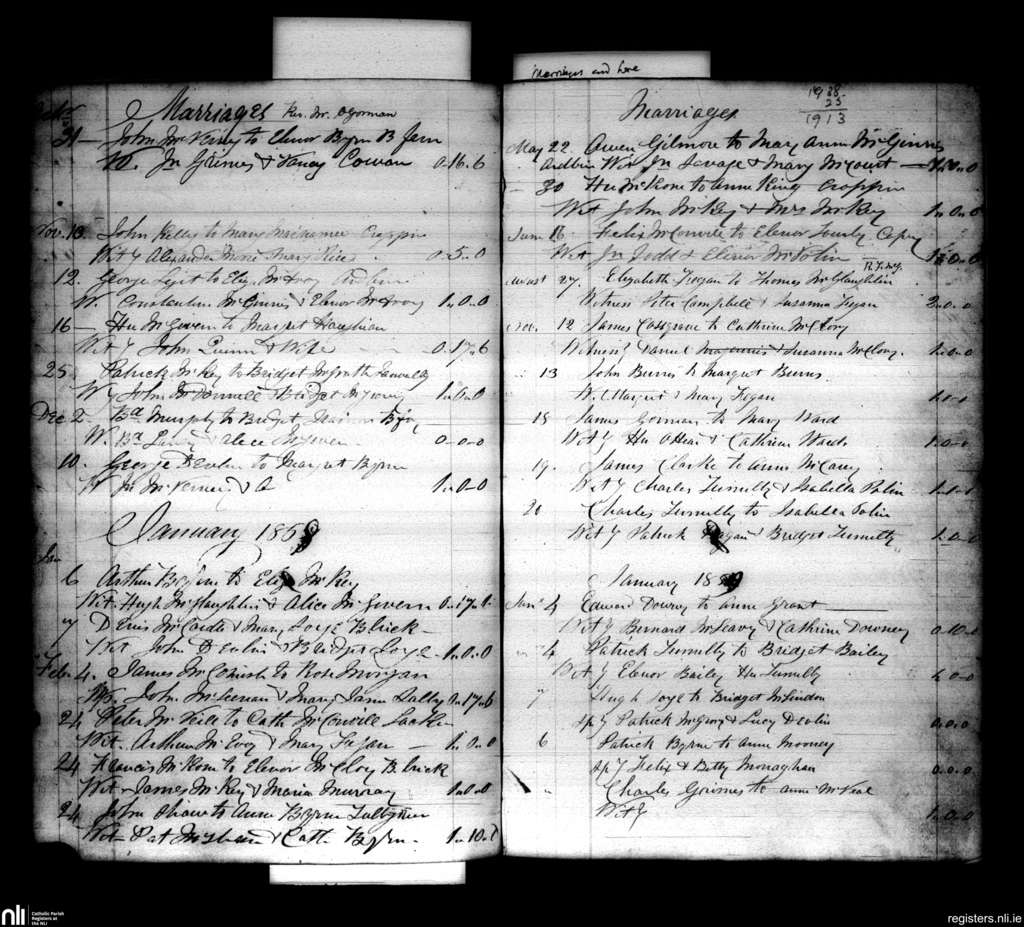 Marriages and here
Marriages Rev. Mr. OGorman
31 John McVeney to Elenor Byrn B fern
W. Jn Grimes & Nancy Cowan 0.16.6
Nov. 13. John Kelly to Mary
Wit y Alexander More Mary Rice 0.5.0
12. George to Eliz.
W. Constantine McGinnis & Elenor McAvoy 1.0.0
16 Hu McGiven to Margret Haughian
Wit y John Quinn & Wife 0.17.6
25. Patrick McKey to Bridget McGrath
W y John McDonnell & Bridget 1.0.0
Dec 2. Bd Murphy to Bridget
W. Bd & Alice McGiven 0.0.0
10. George Devlin to Margret Byrn
W Jn McVerney & 1.0.0
January 185
Jan
6 Arthur Byrne to Eliza McKey
Wit. Hugh McGlaughlin & Alice McGivern 0.17.6
7 Denis McCardle & Mary Loye Blrick
Wit John Devlin & Bridget Loye 1.0.0
Feb. 4. James McComish to Rose Morgan
Wit. John McKeenan & Mary Jane Lally 0.17.6
24 Peter McVeill to Cath McConvill
Wit. Arthur McEvoy & Mary Fegan 1.0.0
24 Francis McKone to Elenor McCloy Blrick
Wit James McKey & Maria Murray 1.0.0
24 John Shaw to Anne Byrne
Wit Pat & Cath Byrn. 1.10.0
Marriages
1938
25
1913
May 22 Owen Gilmore to Mary Anne McGinnis
Ardbrin Wit Jn Savage & Mary McCourt
30 Hu McKone to Anne King Croppin
Wit John McKey & Mrs McKey 1.0.0
June 16 Felix McConville to Elenor
Wit Jn Dodd & Elenor McPolin
August 27. Elizabeth Fegan to Thomas McGlaughlin
Witness Peter Campbell & Susanna Fegan 2.0.0
12 James Cosgrave to Cathrine McClory
Witness y Daniel Maginnis & Susanna McClory. 1.0.0
13 John Burns to Margret Burns
W. Margret & Mary Fegan 1.0.0
18 James Gorman to Mary Ward
Wit y Hu OHear & Cathrine Wards 1.0.0
19. James Clarke to Anne McCavey
Wit y Charles Tumulty & Isabella Polin 1.0.0
20 Charles Tumulty to Isabella Polin
Wit y Patrick Fegan & Bridget Tumulty 1.0.0
January 18
Jany 4 Edward Downey to Anne Grant
Wit y Bernard McLeavy & Cathrine Downey 0.10.0
" 4 Patrick Tumulty to Bridget Bailey
Wit y Elenor Bailey Hu Tumulty 1.0.0
" 7 Hugh Loye to Bridget McLindon
Sp y Patrick McGivey & Lucy Devlin 0.0.0
6 Patrick Byrne to Anne Mooney
Sp y Felix & Betty Monaghan 0.0.0
" Charles Grimes to Anne McVeal
Wit y 1.0.0
nli Catholic Parish
Registers at
the NLI
registers.nli.ie